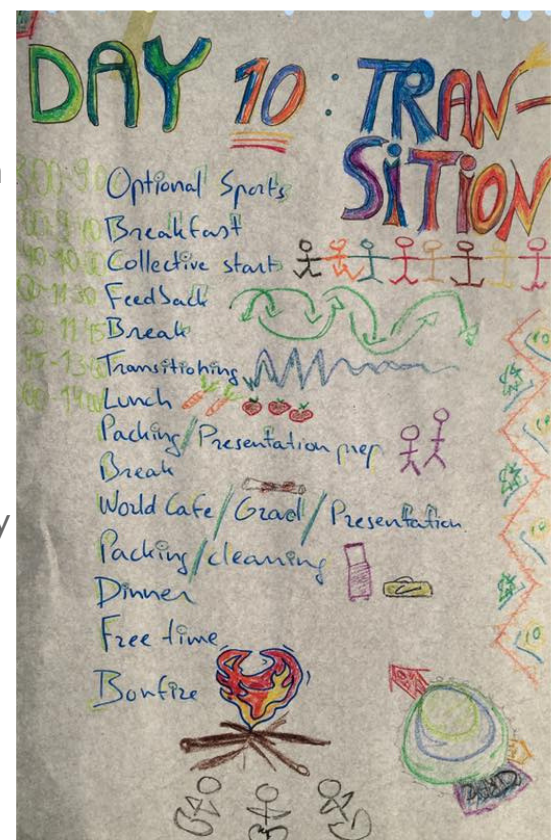 DAY 10: TRAN-
SITION
Optional Sports
Breakfast
Collective start
Feedback
Break
Transitioning
Lunch
Packing/Presentation prep
Break
World Cafe/Grad/Presentation
Packing/cleaning
Dinner
Free time
Bonfire